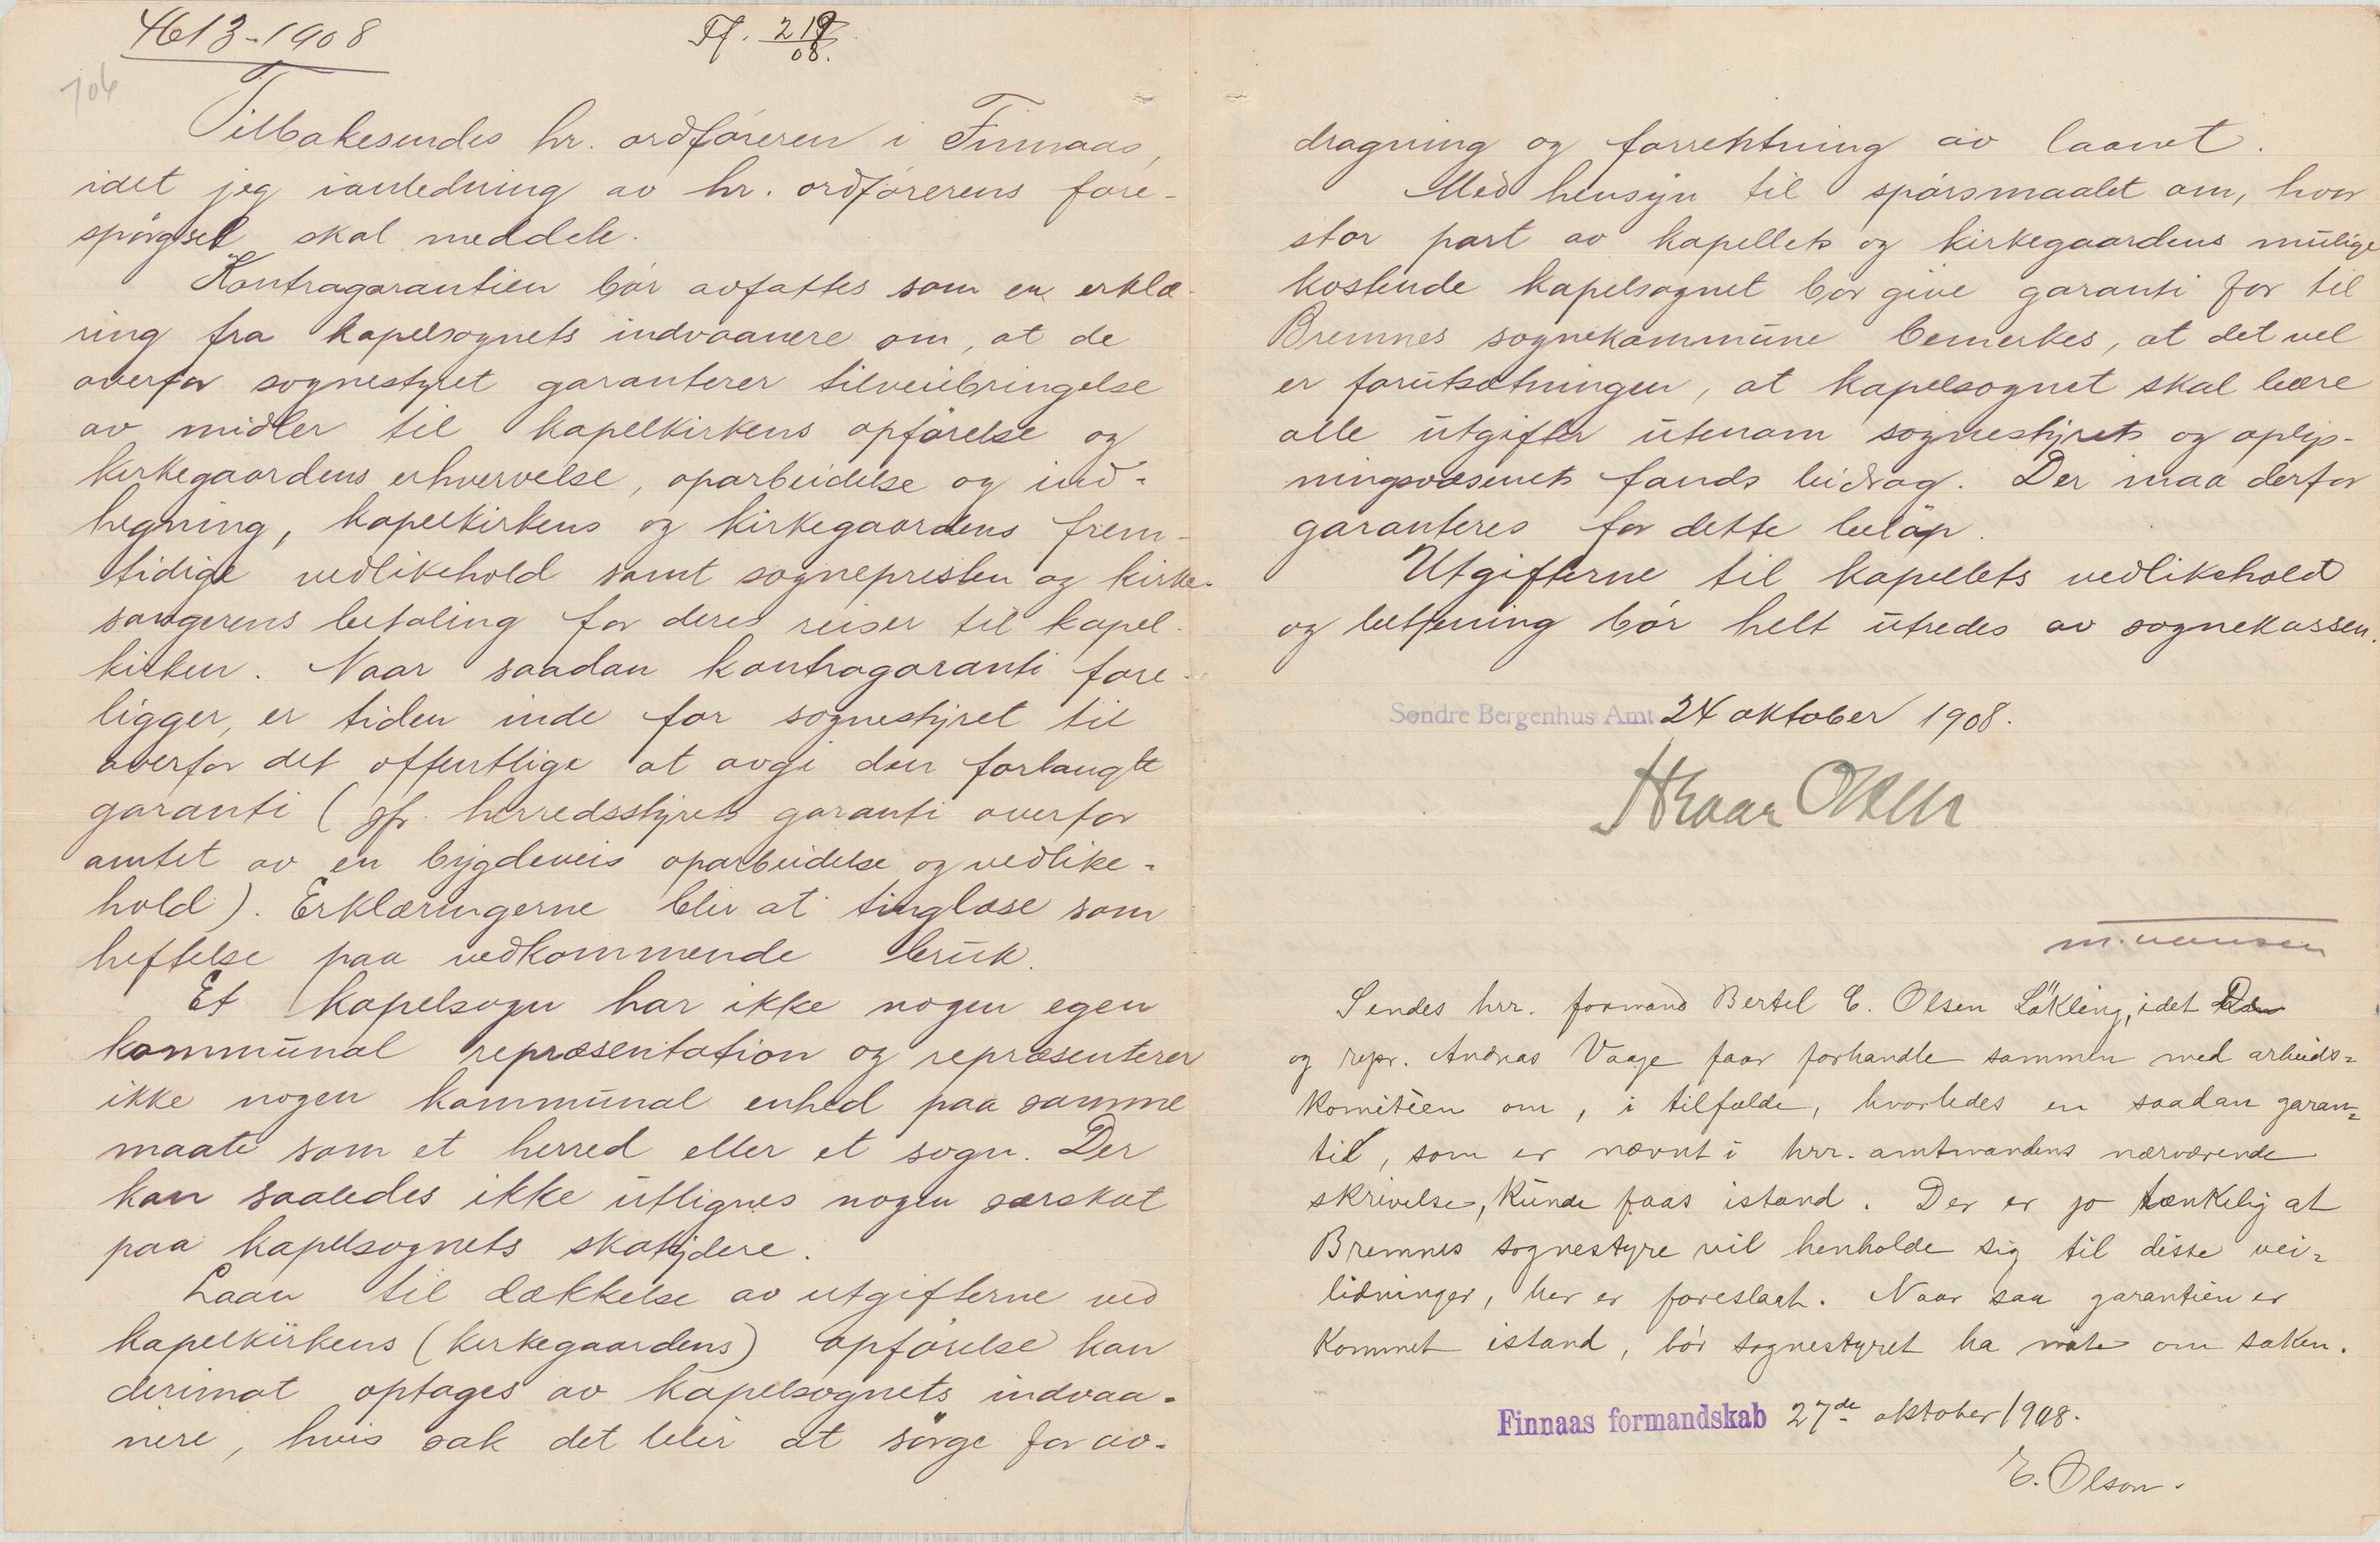 4613-1908
Ff. 219/08.
106
Tilbakesendes hr. ordföreren i Finnaas,
idet jeg ianledning av hr. ordförerens fore-
spörgsel skal meddele.
Kontragarantien bör avfattes som en erklæ-
ring fra kapelsognets indvaanere om, at de
overfor sognestyret garanterer tilveiebringelse
av midler til kapelkirkens opförelse og
kirkegaardens erhvervelse, oparbeidelse og ind-
hegning, kapelkirkens og kirkegaardens frem-
tidige vedlikehold samt sognepresten og kirke-
sangerens betaling for deres reiser til kapel-
kirken. Naar saadan kontragaranti fore-
ligger, er tiden inde for sognestyret til
overfor det offentlige at avgi den forlangte
garanti (jfr. herredsstyrets garanti overfor
amtet av en bygdeveis oparbeidelse og vedlike-
hold). Erklæringerne blir at tinglæse som
heftelse paa vedkommende bruk.
Et kapelsogn har ikke nogen egen
kommunal repræsentation og repræsenterer
ikke nogen kommunal enhed paa samme
maate som et herred eller et sogn. Der
kan saaledes ikke utlignes nogen særskat
paa kapelsognets skatydere.
Laan til dækkelse av utgifterne ved
kapelkirkens (kirkegaardens) opförelse kan
derimot optages av kapelsognets indvaa-
nere, hvis sak det blir at sörge for av-
dragning og forrentning av laanet.
Med hensyn til spörsmaalet om, hvor
stor part av kapellets og kirkegaardens mulige
kostende kapelsognet bör give garanti for til
Bremnes sognekommune bemerkes, at det vel
er forutsætningen, at kapelsognet skal bære
alle utgifter utenom sognestyrets og oplys-
ningsvæsenets fonds bidrag. Der maa derfor
garanteres for dette belöp.
Utgifterne til kapellets vedlikehold
og betjening bör helt utredes av sognekassen.
Søndre Bergenhus Amt 24 oktober 1908.
Hroar Olsen
Sendes hrr. formand Bertel E. Olsen Lökling, idet De
og repr. Andreas Vaage faar forhandle sammen med arbeids-
komitèen om, i tilfælde, hvorledes en saadan garan-
ti, som er nævnt i hrr. amtmandens nærværende
skrivelse, kunde faas istand. Der er jo tænkelig at
Bremnes sognestyre vil henholde sig til disse vei-
ledninger, her er foreslaat. Naar saa garantien er
kommet istand, bör sognestyret ha möte om saken.
Finnaas formandskab 27de oktober 1908.
E. Olson.